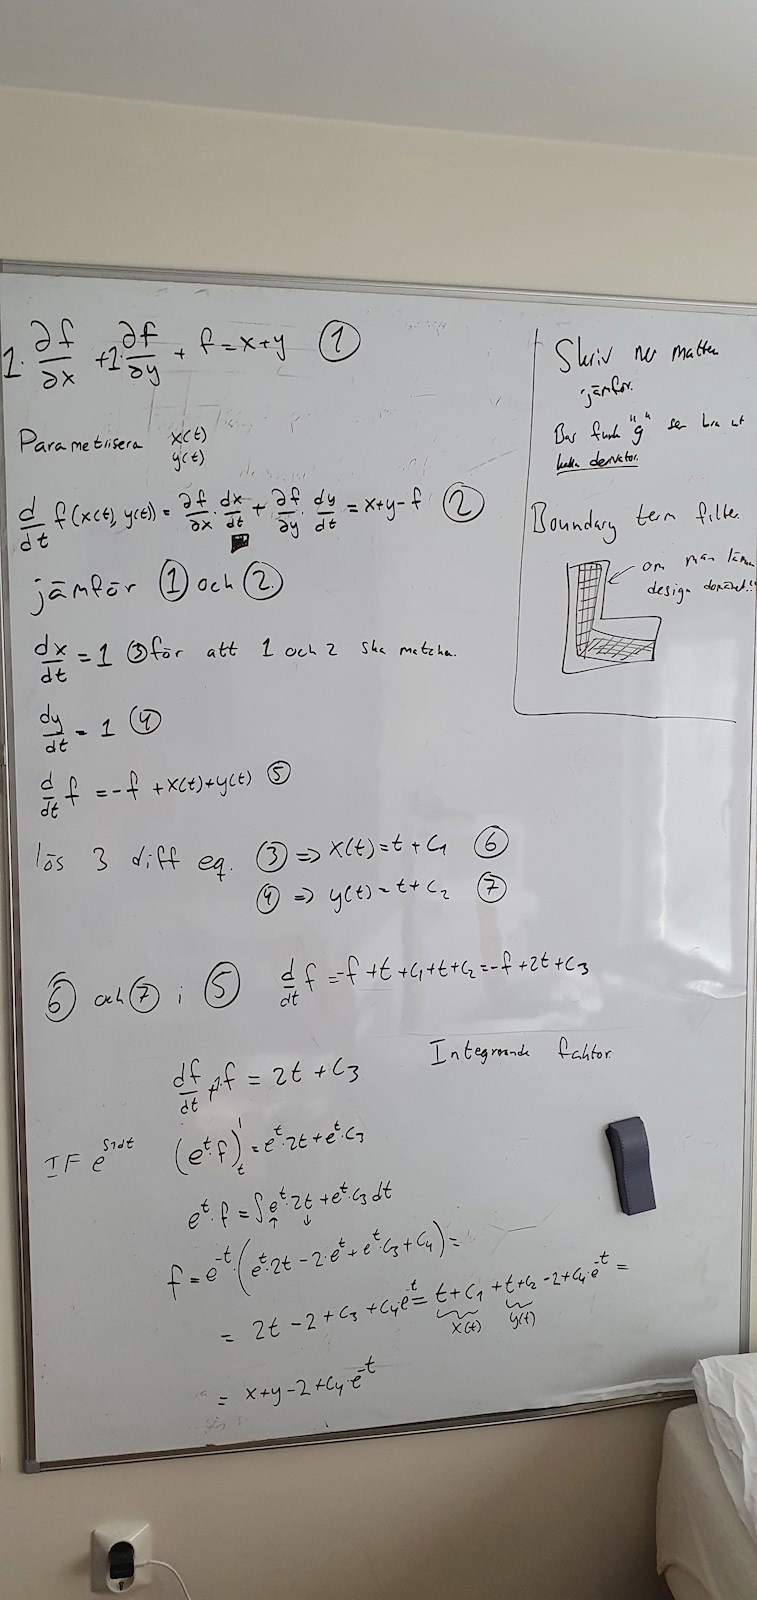 1·∂f/∂x +1·∂f/∂y + f = x+y ①
Parametrisera x(t)
y(t)
d/dt f(x(t), y(t)) = ∂f/∂x · dx/dt + ∂f/∂y · dy/dt = x+y-f ②
jämför ① och ②.
dx/dt = 1 ③ för att 1 och 2 ska matcha.
dy/dt = 1 ④
d/dt f = -f + x(t)+y(t) ⑤
lös 3 diff eq. ③ => x(t) = t + C₁ ⑥
④ => y(t) = t + C₂ ⑦
⑥ och ⑦ i ⑤ d/dt f = -f + t + C₁ + t + C₂ = -f + 2t + C₃
Integrerande faktor.
df/dt + 1·f = 2t + C₃
IF e^∫1dt (e^t·f)'_t = e^t·2t + e^t·C₃
e^t·f = ∫e^t·2t + e^t·C₃ dt
↑ ↓
f = e^-t·(e^t·2t - 2·e^t + e^t·C₃ + C₄) =
= 2t - 2 + C₃ + C₄e^-t = t + C₁ + t + C₂ - 2 + C₄·e^-t =
x(t) y(t)
= x+y-2+C₄·e^-t
Skriv ner matten
jämför.
"g"
derivator.
Boundary term filter
om man
design domänet!!